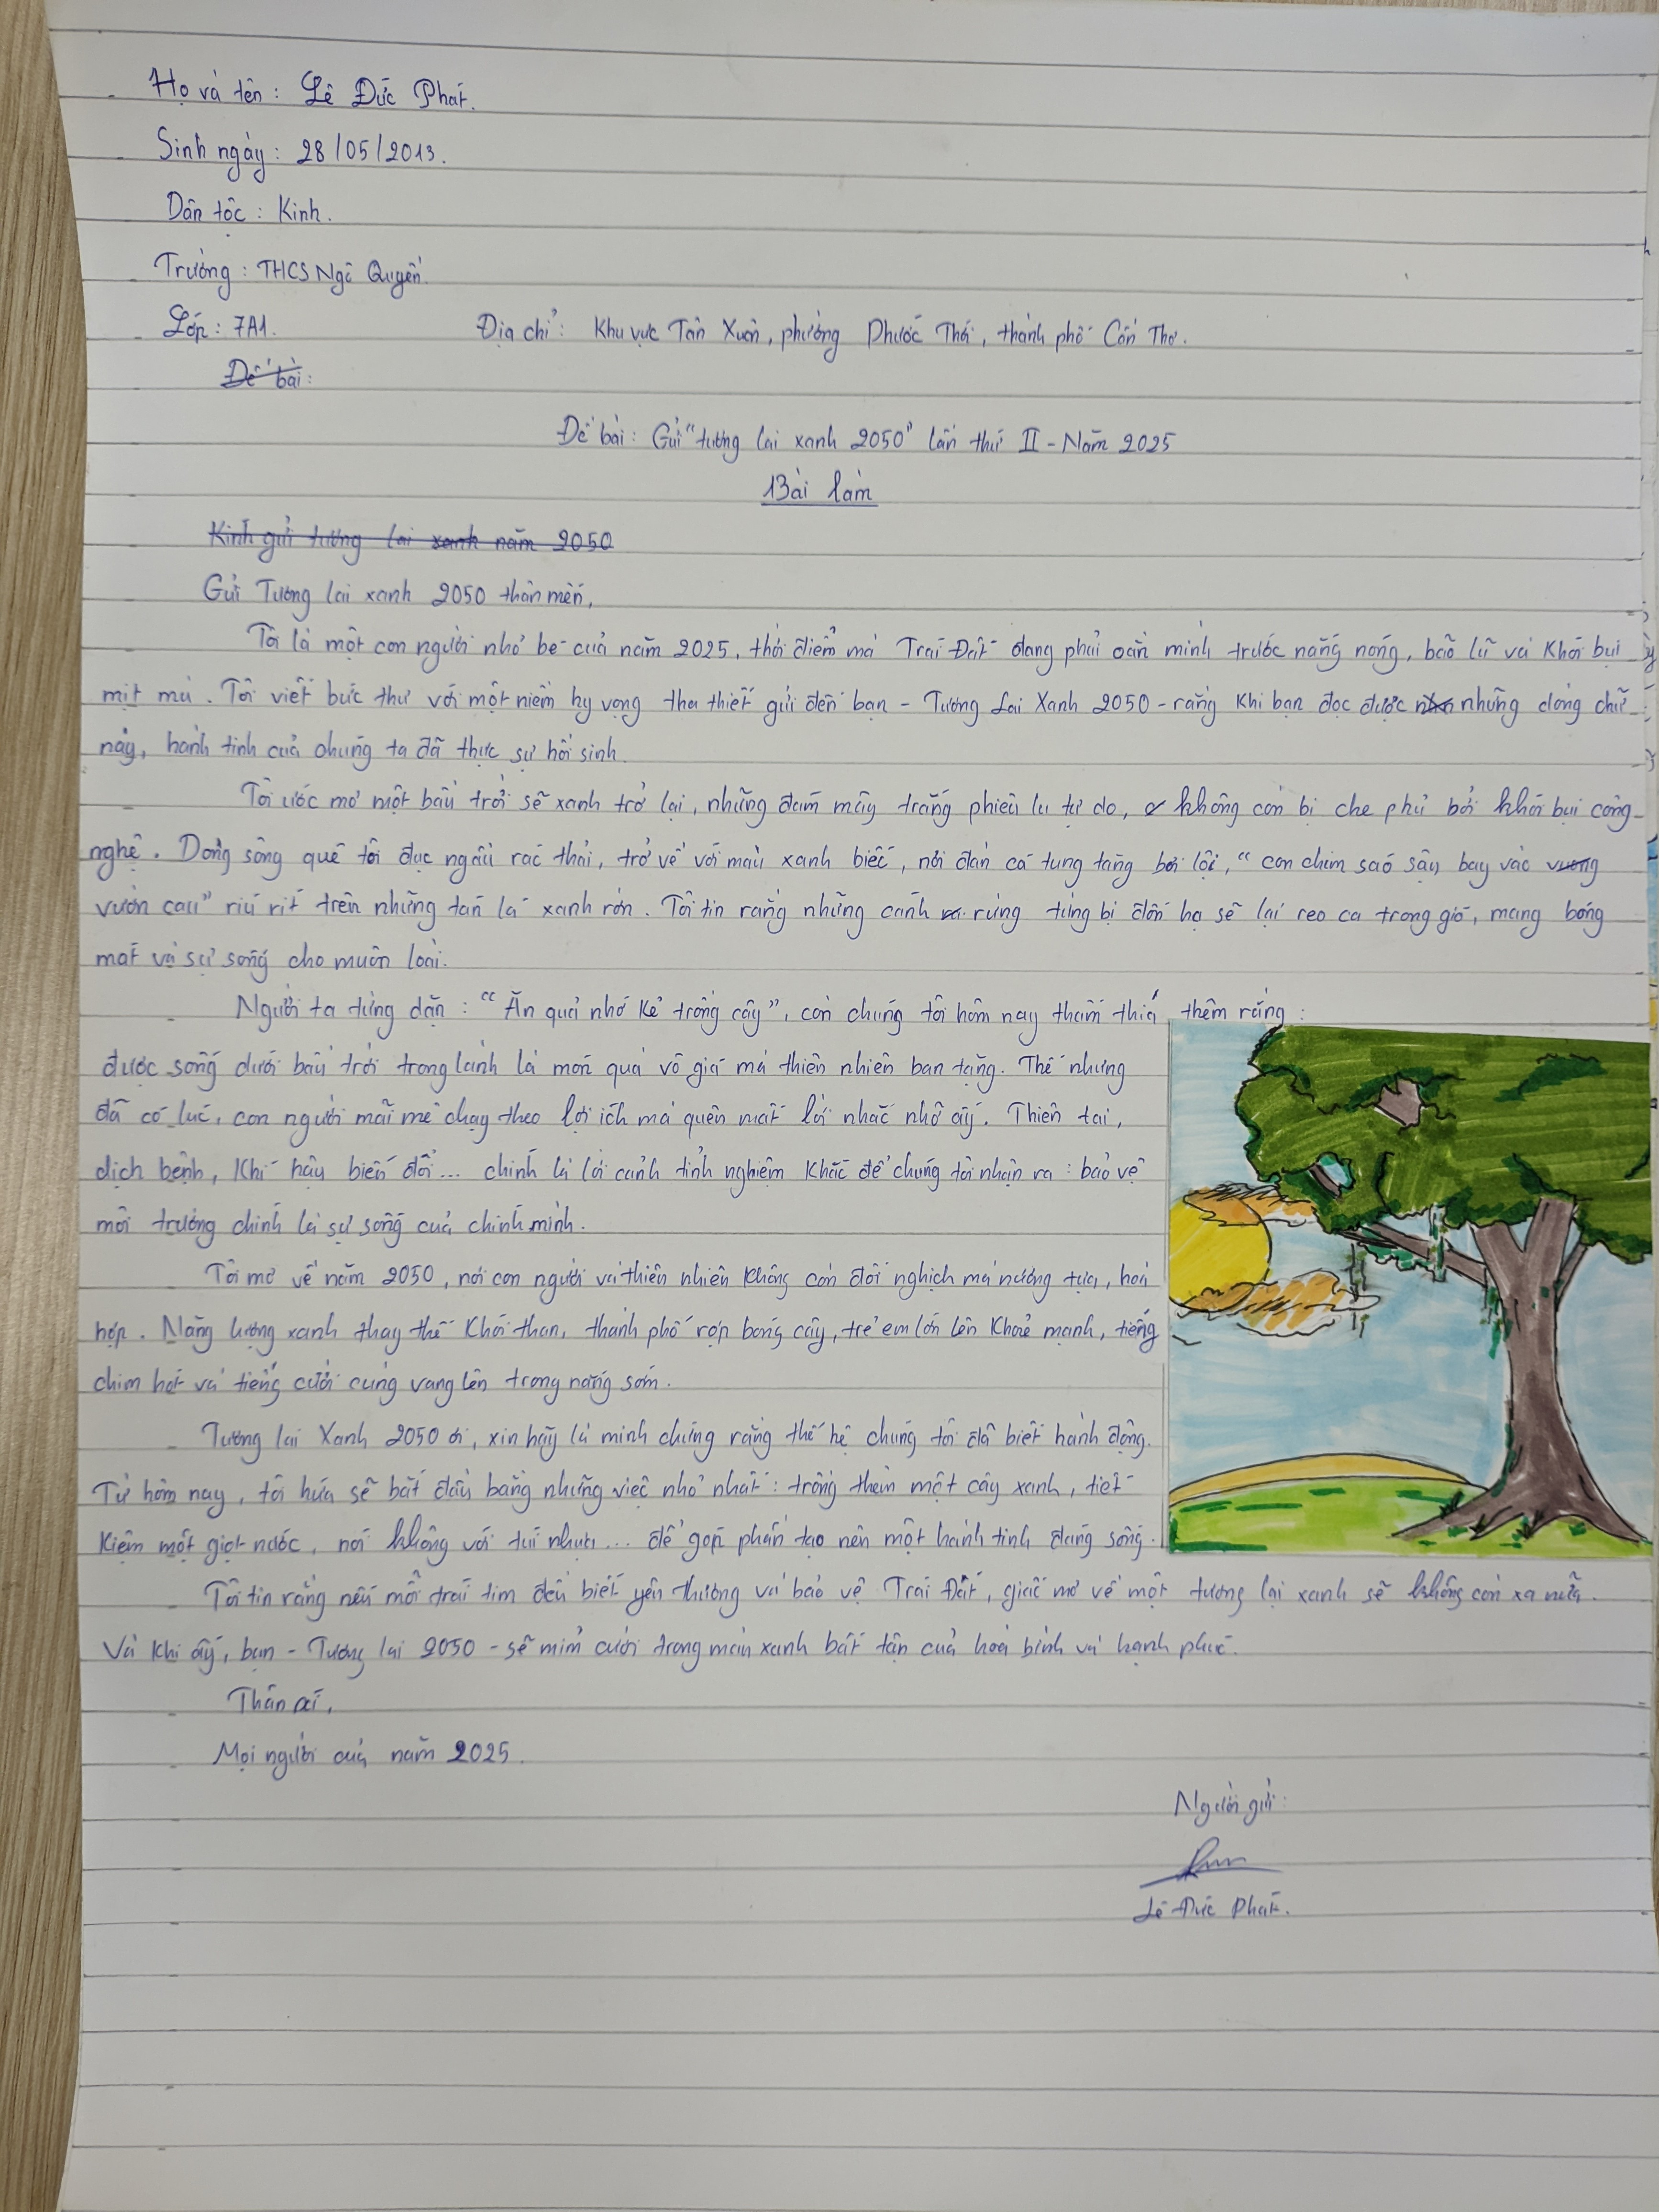 Họ và tên : Lê Đức Phát.
Sinh ngày : 28/05/2013.
Dân tộc : Kinh.
Trường : THCS Ngô Quyền
Lớp : 7A1. Địa chỉ : Khu vực Tân Xuân, phường Phước Thới, thành phố Cần Thơ.
Đề bài :
Đề bài : Gửi "tương lai xanh 2050" lần thứ II - Năm 2025
Bài làm
Kính gửi tương lai xanh năm 2050
Gửi Tương lai xanh 2050 thân mến,
Tôi là một con người nhỏ bé của năm 2025, thời điểm mà Trái Đất đang phải oằn mình trước nắng nóng, bão lũ và khói bụi
mịt mù. Tôi viết bức thư với một niềm hy vọng tha thiết gửi đến bạn - Tương Lai Xanh 2050 - rằng khi bạn đọc được những dòng chữ
này, hành tinh của chúng ta đã thực sự hồi sinh.
Tôi ước mơ một bầu trời sẽ xanh trở lại, những đám mây trắng phiêu lu tự do, không còn bị che phủ bởi khói bụi công
nghệ. Dòng sông quê tôi đục ngầu rác thải, trở về với màu xanh biếc, nơi đàn cá tung tăng bơi lội, "con chim sáo sậu bay vào vương
vườn cau" ríu rít trên những tán lá xanh rờn. Tôi tin rằng những cánh rừng từng bị đốn hạ sẽ lại reo ca trong gió, mang bóng
mát và sự sống cho muôn loài.
Người ta từng dặn : "Ăn quả nhớ kẻ trồng cây", còn chúng tôi hôm nay thấm thía thêm rằng :
được sống dưới bầu trời trong lành là món quà vô giá mà thiên nhiên ban tặng. Thế nhưng
đã có lúc, con người mải mê chạy theo lợi ích mà quên mất lời nhắc nhở ấy. Thiên tai,
dịch bệnh, khí hậu biến đổi... chính là lời cảnh tỉnh nghiêm khắc để chúng tôi nhận ra : bảo vệ
môi trường chính là sự sống của chính mình.
Tôi mơ về năm 2050, nơi con người và thiên nhiên không còn đối nghịch mà nương tựa, hoà
hợp. Năng lượng xanh thay thế khói than, thành phố rợp bóng cây, trẻ em lớn lên khoẻ mạnh, tiếng
chim hót và tiếng cười cùng vang lên trong nắng sớm.
Tương lai Xanh 2050 ơi, xin hãy là minh chứng rằng thế hệ chúng tôi đã biết hành động.
Từ hôm nay, tôi hứa sẽ bắt đầu bằng những việc nhỏ nhất : trồng thêm một cây xanh, tiết
kiệm một giọt nước, nói không với túi nhựa... để góp phần tạo nên một hành tinh đáng sống.
Tôi tin rằng nếu mỗi trái tim đều biết yêu thương và bảo vệ Trái Đất, giấc mơ về một tương lai xanh sẽ không còn xa nữa.
Và khi ấy, bạn - Tương lai 2050 - sẽ mỉm cười trong màu xanh bất tận của hoà bình và hạnh phúc.
Thân ái,
Mọi người của năm 2025.
Người gửi :
Lê Đức Phát.